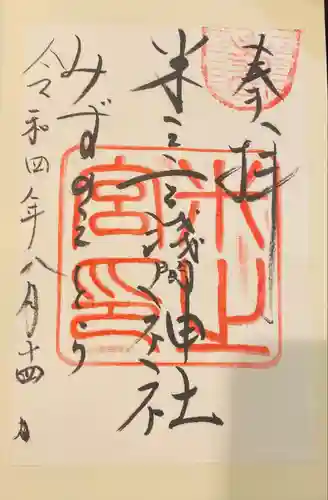 奉拝
米之宮淺間神社
みずのえとら
令和四年八月十四日
米之
宮印